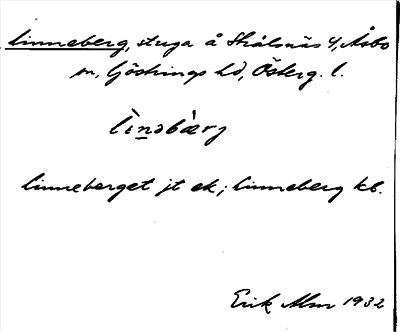 Linneberg, stuga å Skålsnäs 4, Åsbo
sn, Göstrings hd, Österg. l.
lìnəbàrg
Linneberget jt ek; Linneberg kb.
Erik Alm 1932